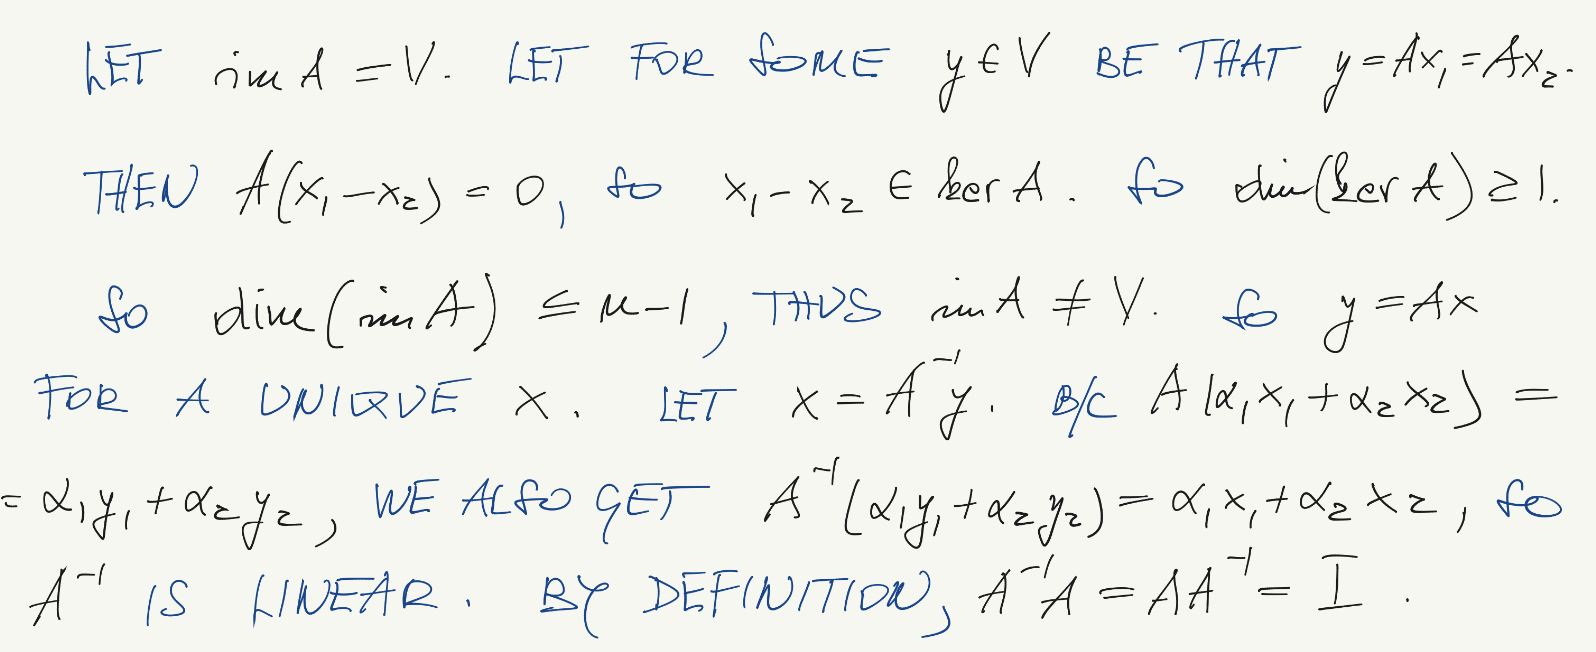 LET im A = V. LET FOR SOME y ∈ V BE THAT y = Ax₁ = Ax₂.
THEN A(x₁ - x₂) = 0, SO x₁ - x₂ ∈ ker A. SO dim(ker A) ≥ 1.
SO dim(im A) ≤ n-1, THUS im A ≠ V. SO y = Ax
FOR A UNIQUE x. LET x = A⁻¹y. B/C A(α₁x₁ + α₂x₂) =
= α₁y₁ + α₂y₂, WE ALSO GET A⁻¹(α₁y₁ + α₂y₂) = α₁x₁ + α₂x₂, SO
A⁻¹ IS LINEAR. BY DEFINITION, A⁻¹A = AA⁻¹ = I.